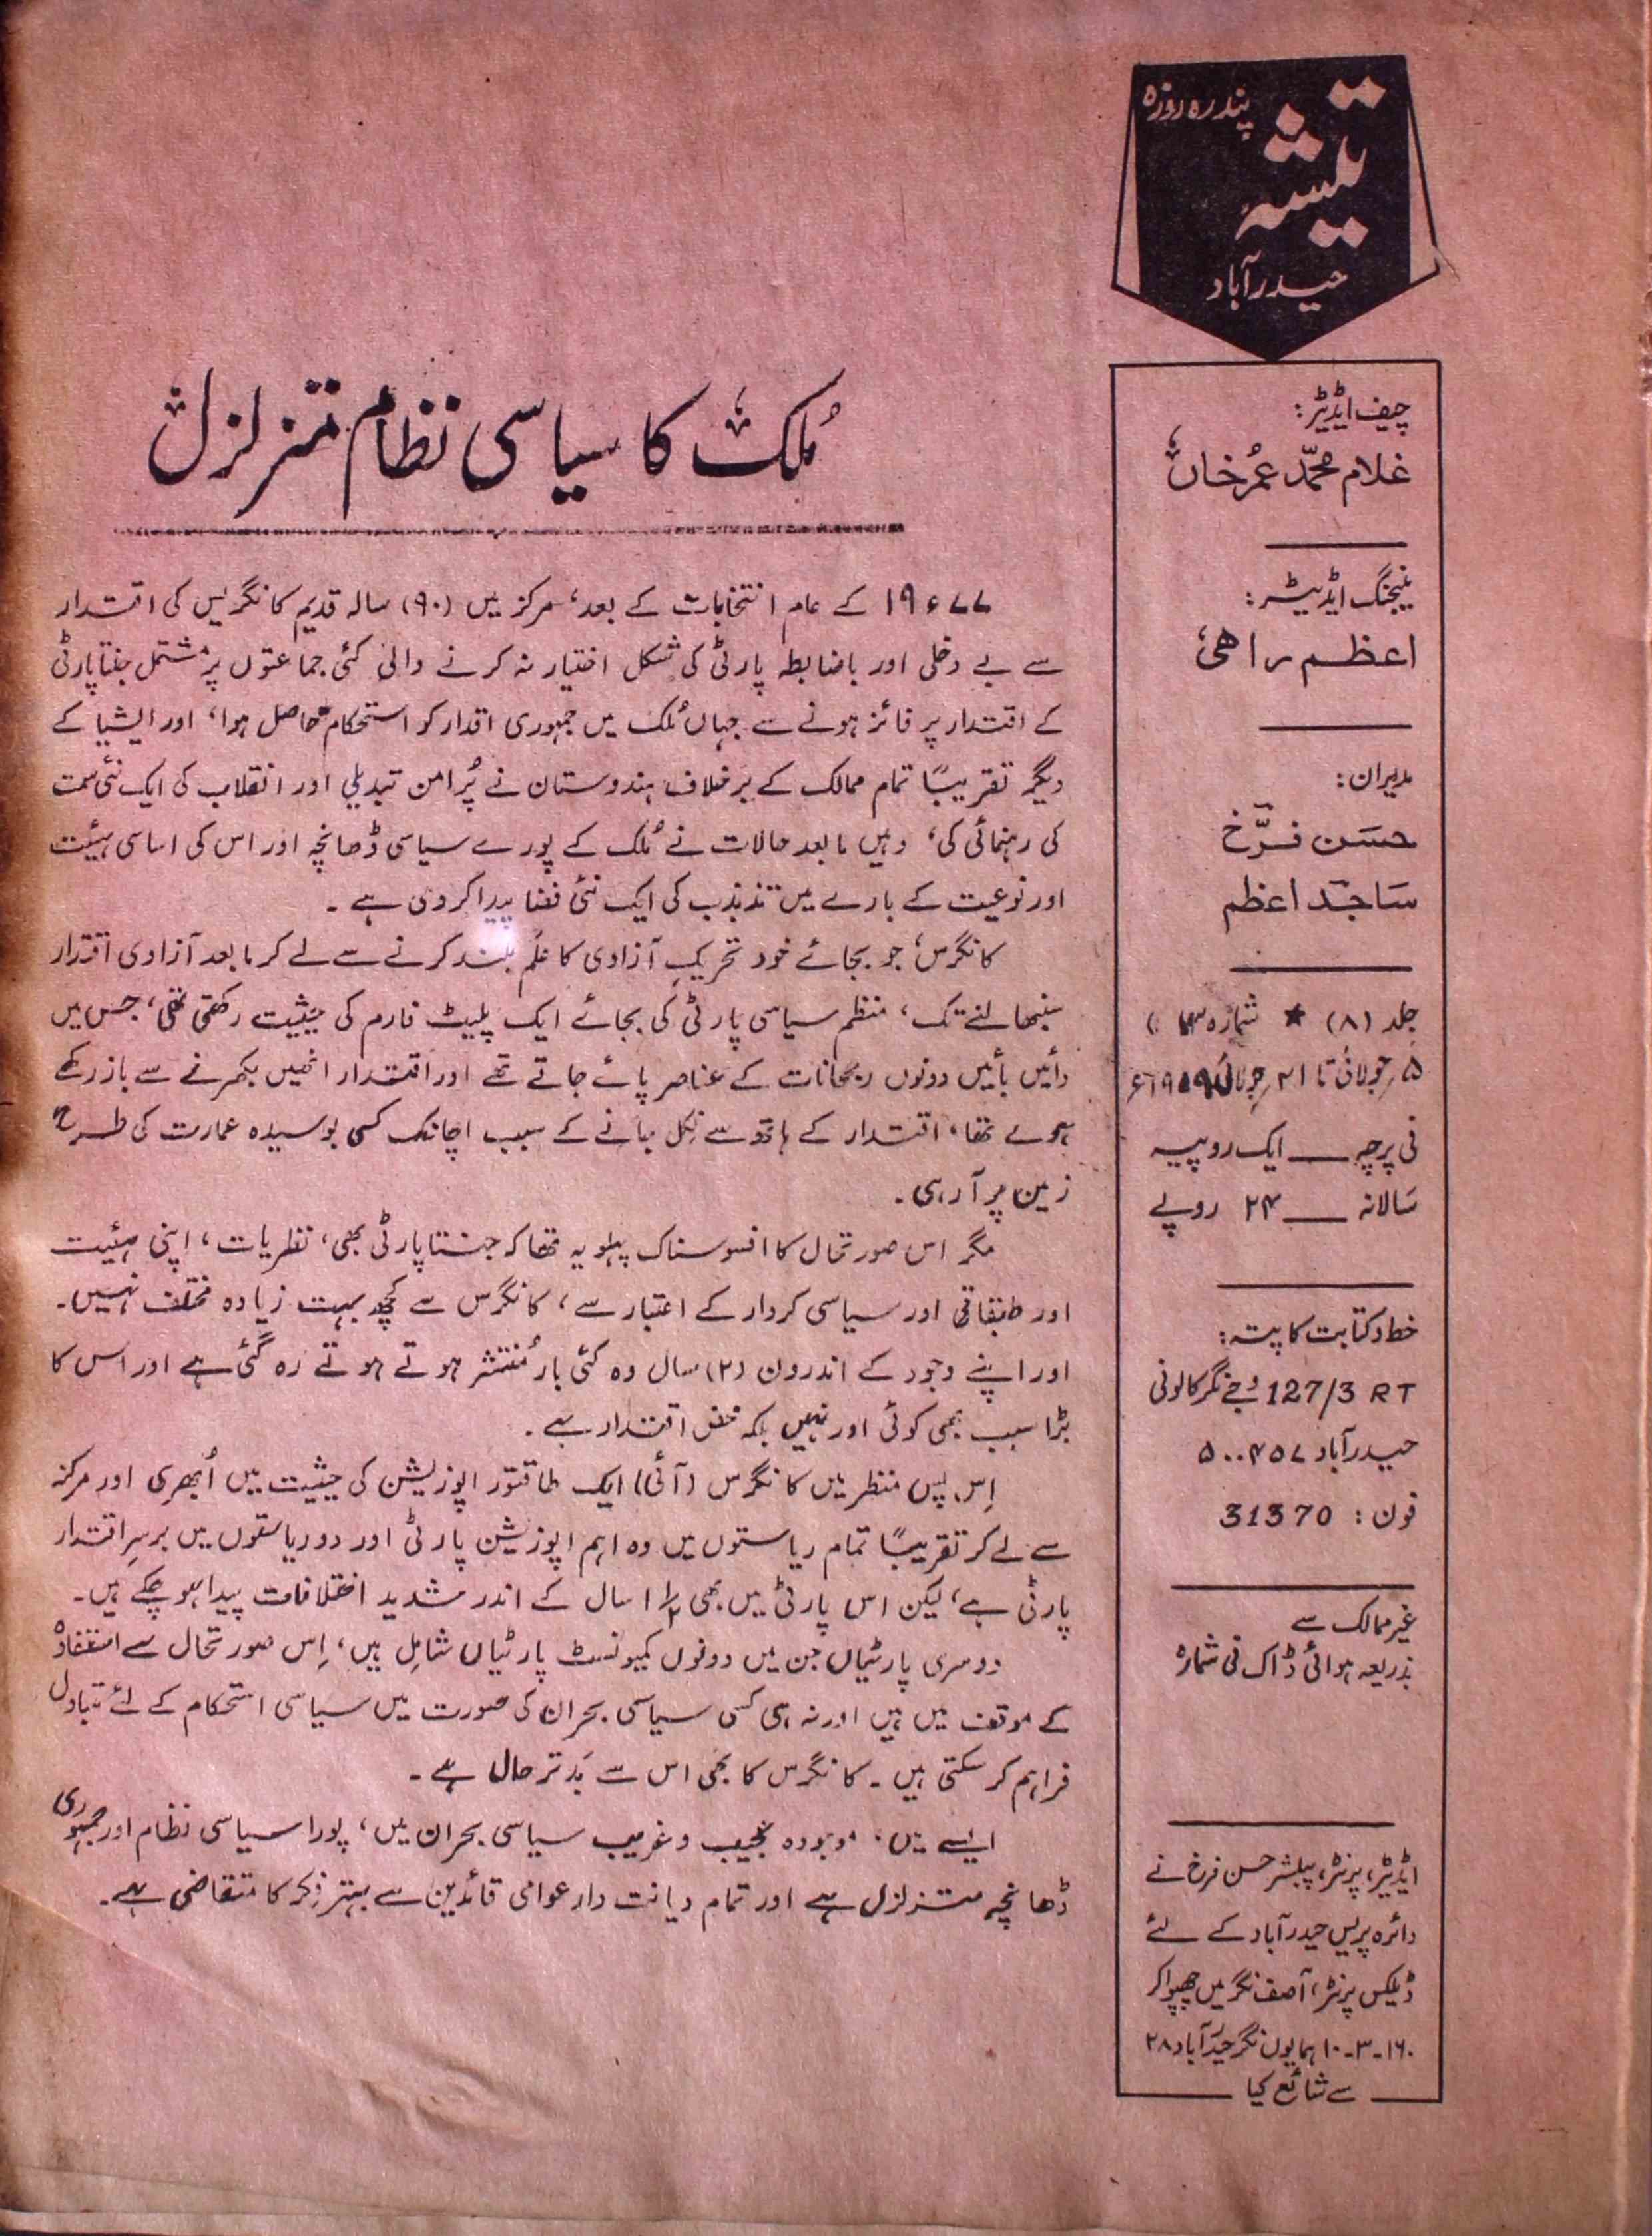 پندرہ روزہ
تیشہ
حیدرآباد
چیف ایڈیٹر:
غلام محمّد عمر خاں
منیجنگ ایڈیٹر:
اعظم راهی
مدیران:
حسَن فرّخ
سَاجد اعظم
جلد (۸) ★ شمارہ
جولائی تا ۲۱ جولائی
فی پرچہ ___ ایک روپیہ
سَالانہ ___ ۲۴ روپے
خط و کتابت کا پتہ:
127/3 RT وجے نگر کالونی
حیدرآباد ۵۰۰۴۵۷
فون: 31370
غیر ممالک سے
بذریعہ ہوائی ڈاک فی شمارہ
ایڈیٹر، پرنٹر، پبلشر حسن فرخ نے
دائرہ پریس حیدرآباد کے لئے
ڈیلکس پرنٹر، آصف نگر میں چھپوا کر
۱۶۰-۳-۱۰ ہمایوں نگر حیدرآباد ۲۸
سے شائع کیا
مُلک کا سیاسی نظام متزلزل
۱۹۷۷ء کے عام انتخابات کے بعد، مرکز میں (۹۰) سالہ قدیم کانگریس کی اقتدار
سے بے دخلی اور باضابطہ پارٹی کی شکل اختیار نہ کرنے والی کئی جماعتوں پر مشتمل جنتا پارٹی
کے اقتدار پر فائز ہونے سے جہاں مُلک میں جمہوری اقدار کو استحکام حاصل ہوا، اور ایشیا کے
دیگر تقریبًا تمام ممالک کے برخلاف ہندوستان نے پُرامن تبدیلی اور انقلاب کی ایک نئی سمت
کی رہنمائی کی، وہیں مابعد حالات نے مُلک کے پورے سیاسی ڈھانچہ اور اس کی اساسی ہیئت
اور نوعیت کے بارے میں تذبذب کی ایک نئی فضا پیدا کر دی ہے۔
کانگرس، جو بجائے خود تحریکِ آزادی کا عَلَم بلند کرنے سے لے کر مابعد آزادی اقتدار
سنبھالنے تک، منظم سیاسی پارٹی کی بجائے ایک پلیٹ فارم کی حیثیت رکھتی تھی، جس میں
دائیں بائیں دونوں رجحانات کے عناصر پائے جاتے تھے اور اقتدار انھیں بکھرنے سے باز رکھے
ہوے تھا، اقتدار کے ہاتھ سے نکل جانے کے سبب اچانک کسی بوسیدہ عمارت کی طرح
زمین پر آ رہی۔
مگر اس صورتحال کا افسوسناک پہلو یہ تھا کہ جنتا پارٹی بھی، نظریات، اپنی ہیئت
اور طبقاتی اور سیاسی کردار کے اعتبار سے، کانگرس سے کچھ بہت زیادہ مختلف نہیں۔
اور اپنے وجود کے اندرون (۲) سال وہ کئی بار مُنتشر ہوتے ہوتے رہ گئی ہے اور اس کا
بڑا سبب بھی کوئی اور نہیں بلکہ محض اقتدار ہے۔
اِس پس منظر میں کانگرس (آئی) ایک طاقتور اپوزیشن کی حیثیت میں اُبھری اور مرکز
سے لے کر تقریبًا تمام ریاستوں میں وہ اہم اپوزیشن پارٹی اور دو ریاستوں میں برسرِاقتدار
پارٹی ہے، لیکن اس پارٹی میں بھی ۱ ۱/۲ سال کے اندر شدید اختلافات پیدا ہو چکے ہیں۔
دوسری پارٹیاں جن میں دونوں کمیونسٹ پارٹیاں شامِل ہیں، اِس صورتحال سے استفادہ
کے موقف میں ہیں اور نہ ہی کسی سیاسی بحران کی صورت میں سیاسی استحکام کے لئے متبادل
فراہم کر سکتی ہیں۔ کانگرس کا بھی اس سے بَدتر حال ہے۔
ایسے میں، موجودہ عجیب و غریب سیاسی بحران میں، پورا سیاسی نظام اور جمہوری
ڈھانچہ متزلزل ہے اور تمام دیانت دار عوامی قائدین سے بہتر فِکر کا متقاضی ہے۔